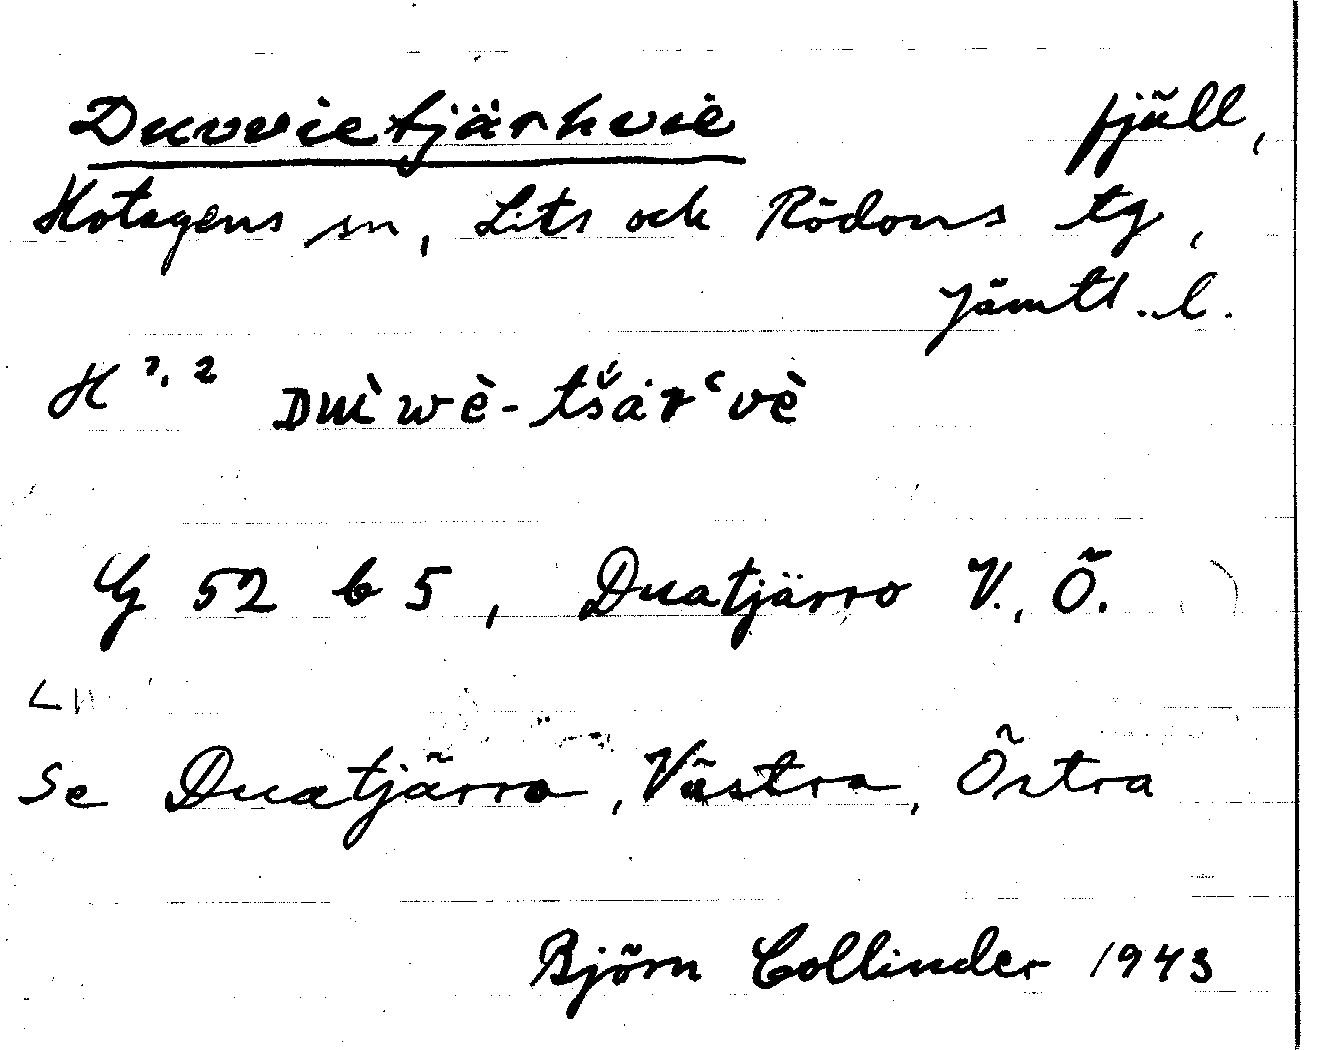 Duvvietjärhvie fjäll,
Hotagens sn, Lits och Rödöns tg,
Jämtl. l.
H 1, 2 Duìwè-tšár‘vè
G 52 b 5, Duatjärro V., Ö.
Se Duatjärro, Västra, Östra
Björn Collinder 1943